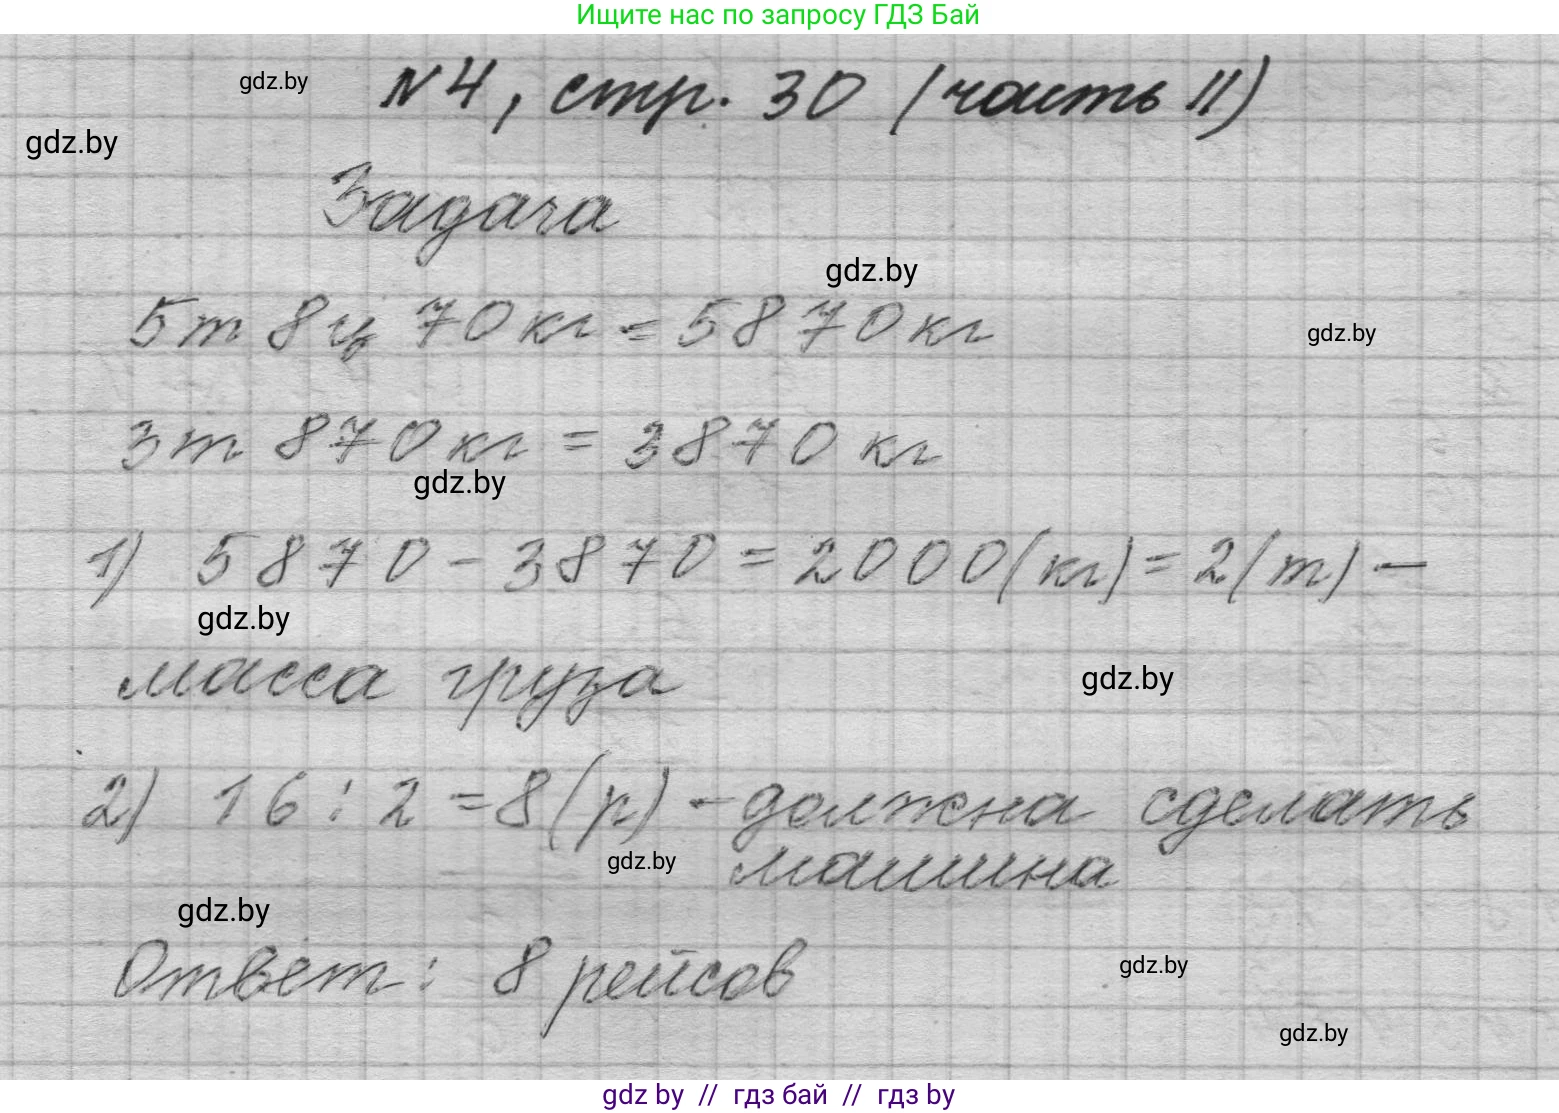 Ищите нас по запросу ГДЗ Бай
gdz.by
N4, стр. 30 (часть II)
gdz.by
Задача
gdz.by
5т 8ц 70кг = 5870кг
gdz.by
3т 870кг = 3870 кг
gdz.by
1) 5870 - 3870 = 2000(кг) = 2(т) -
gdz.by
масса груза
gdz.by
2) 16 : 2 = 8(р) - должна сделать
машина
gdz.by
gdz.by
Ответ: 8 рейсов
gdz.by
gdz.by
gdz by // гдз бай // гдз by